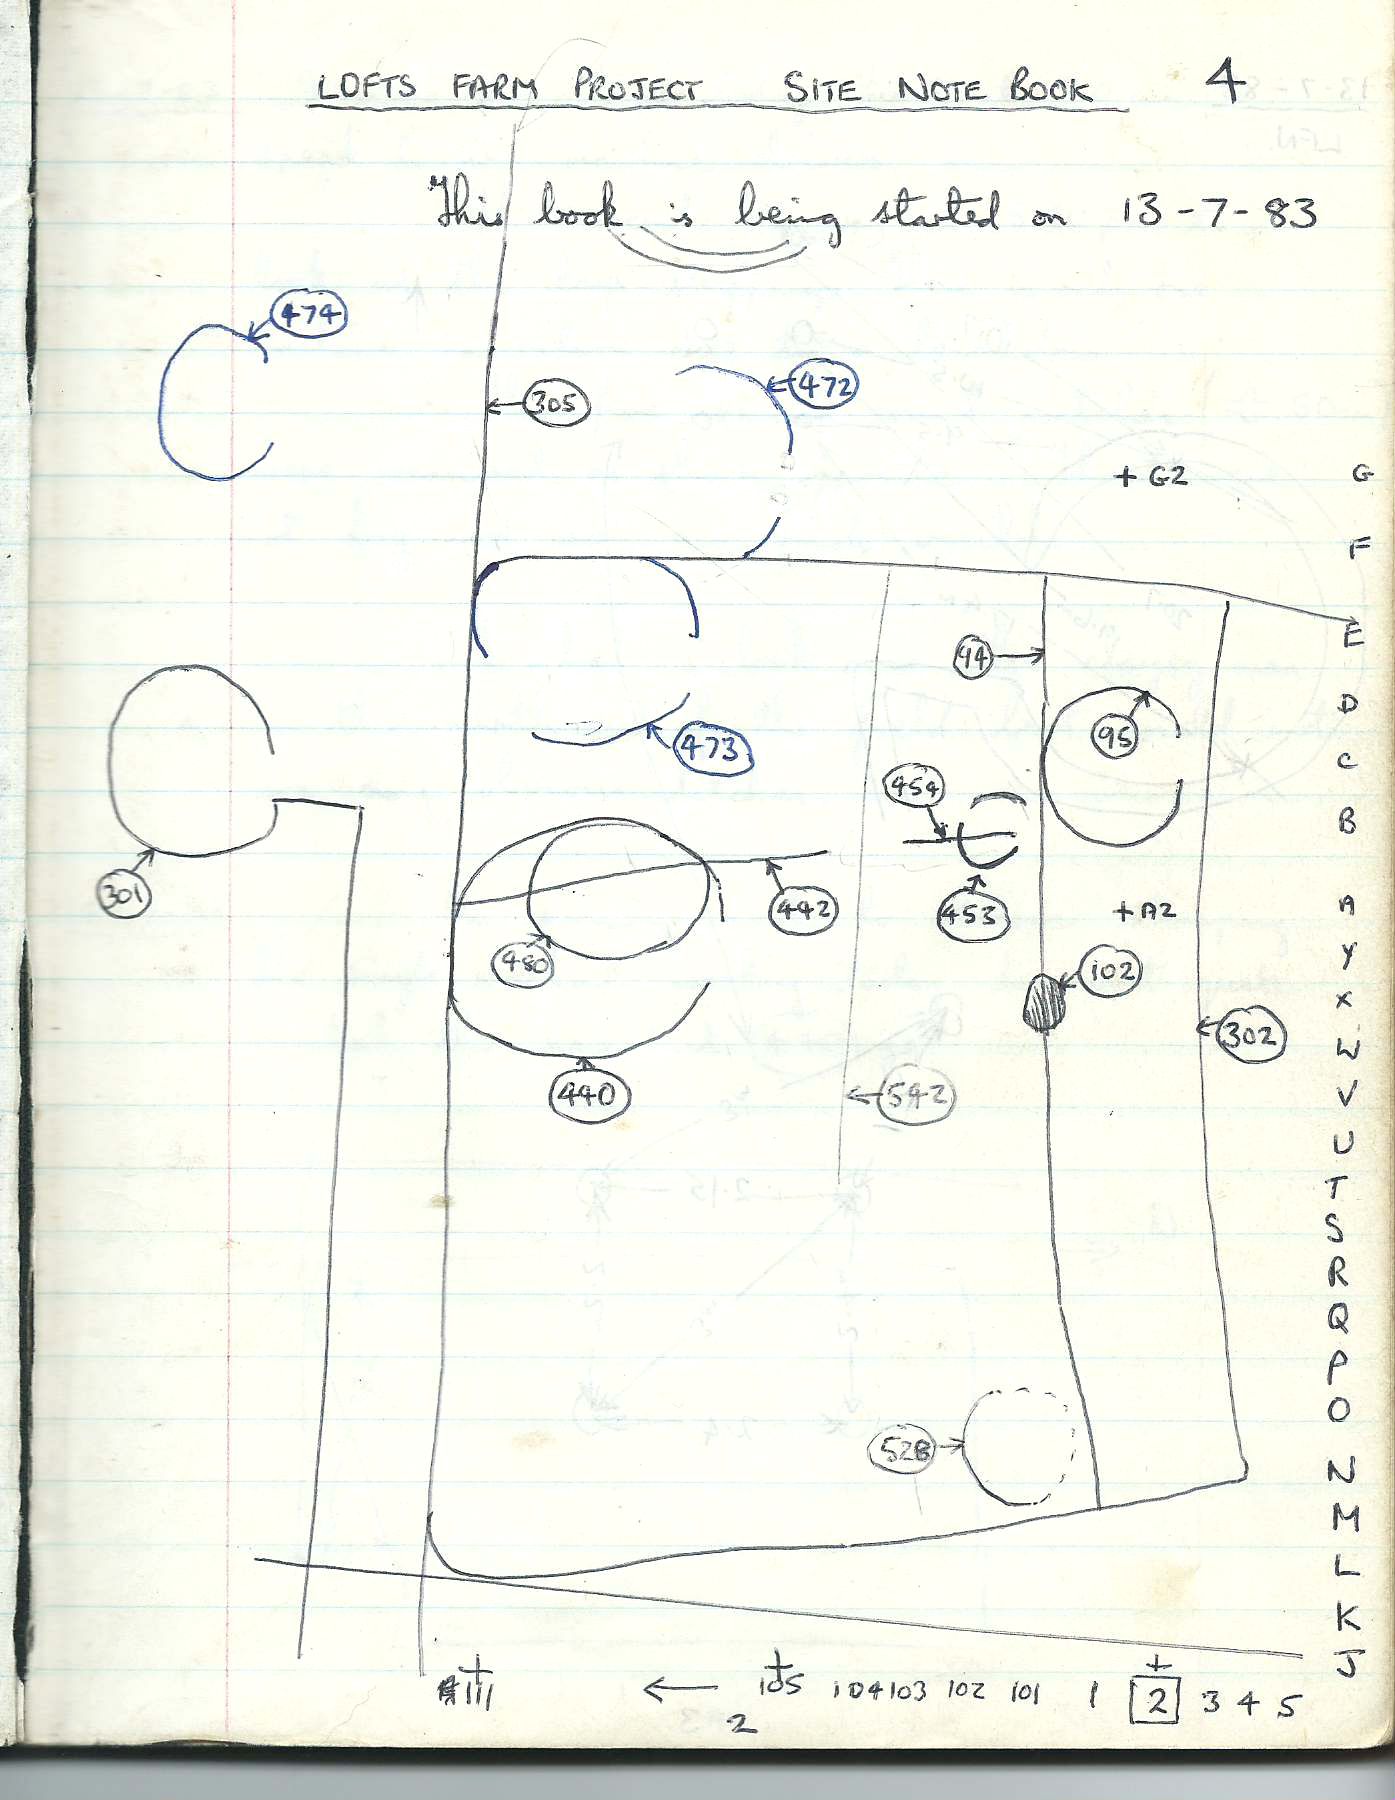 LOFTS FARM PROJECT SITE NOTE BOOK 4
This book is being started on 13-7-83
474
472
305
+ G2
G
F
E
94
D
95
473
C
454
B
301
442
453
+A2
A
480
Y
102
X
302
W
440
542
V
U
T
S
R
Q
P
O
528
N
M
L
K
J
111 ← 105 104 103 102 101 1 2 3 4 5
2